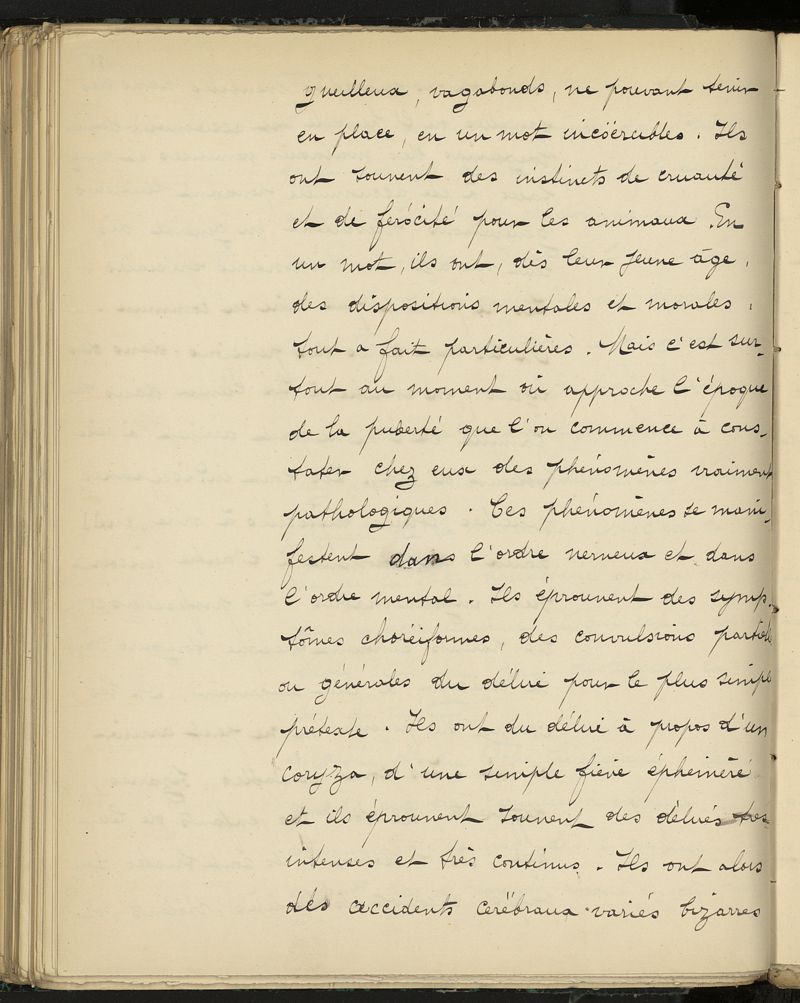 gueilleux, vagabonds, ne pouvant tenir
en place, en un mot incoërcibles. Ils
ont souvent des instincts de cruauté
et de férocité pour les animaux. En
un mot, ils ont, dès leur jeune âge,
des dispositions mentales et morales,
tout a fait particulières. Mais c'est sur-
tout au moment où approche l'époque
de la puberté que l'on commence à cons-
tater chez eux des phénomènes vraiment
pathologiques. Ces phénomènes se mani-
festent dans l'ordre nerveux et dans
l'ordre mental. Ils éprouvent des symp-
tômes choréiformes, des convulsions partielle
ou générales du délire pour le plus simple
prétexte. Ils ont du délire à propos d'un
coryza, d'une simple fièvre éphémère
et ils éprouvent souvent des délires tres
intenses et très continus. Ils ont alors
des accidents cérébraux variés bizarres